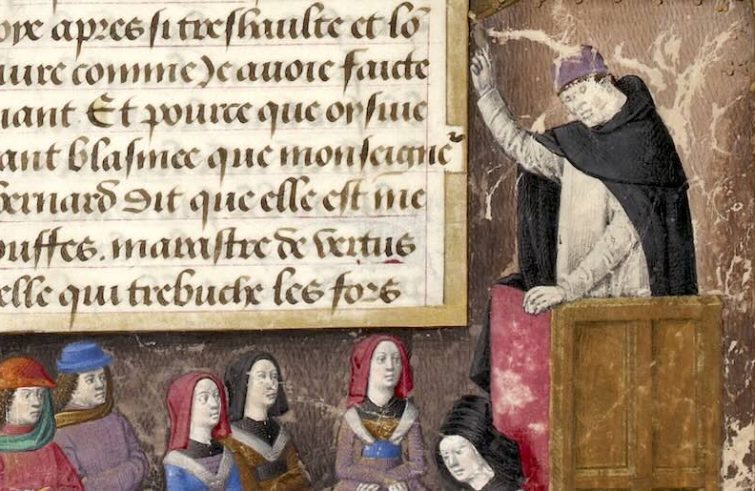 oye apres si treshaulte et lō
uure comme Je auoie faicte
uant Et pource que oysiue
ant blasmee que monseigneᷣ
bernard dit que elle est me
ouffes. marastre de vertus
elle qui trebuche les fors